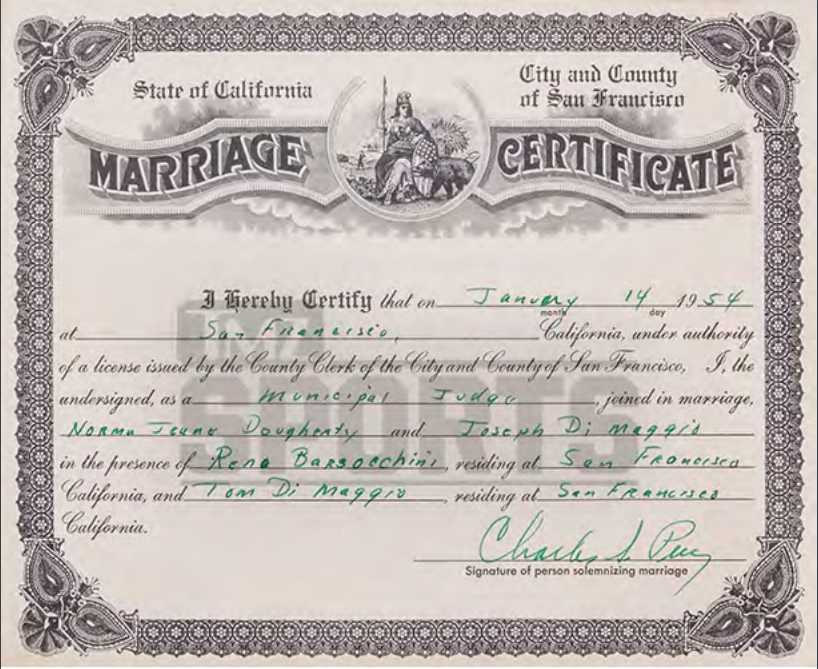 State of California
City and County
of San Francisco
MARRIAGE CERTIFICATE
I Hereby Certify that on January 14 1954
month day
at San Francisco, California, under authority
of a license issued by the County Clerk of the City and County of San Francisco, I, the
undersigned, as a Municipal Judge, joined in marriage,
Norma Jeane Dougherty and Joseph Di Maggio
in the presence of Reno Barsocchini, residing at San Francisco
California, and Tom Di Maggio, residing at San Francisco
California.
Charles S. Perry
Signature of person solemnizing marriage
TMZ
SPORTS